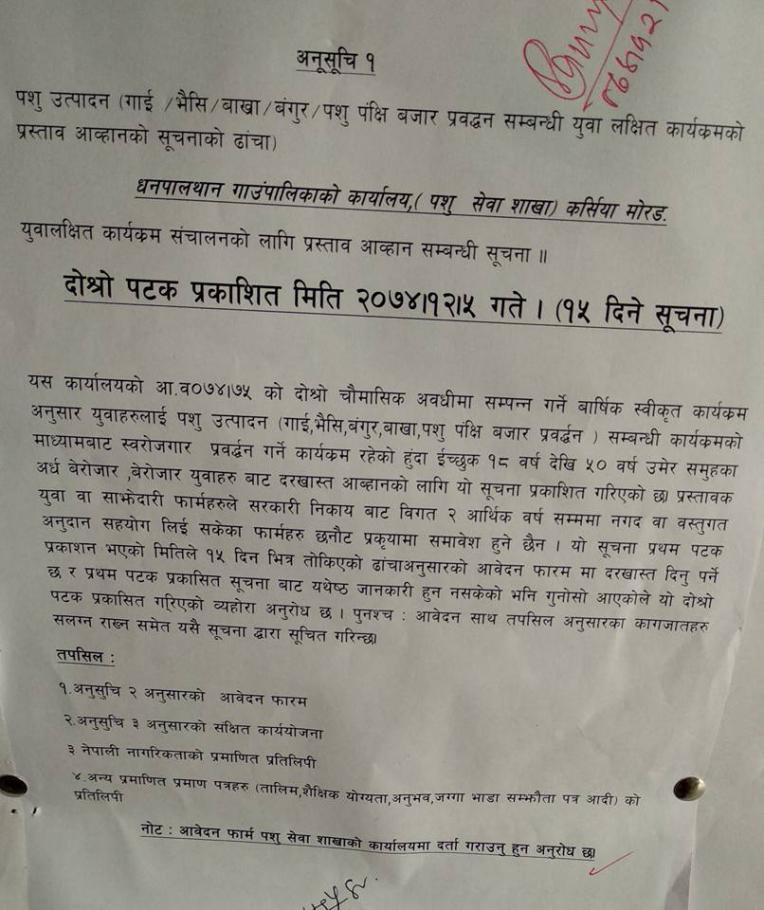 अनूसूचि १
पशु उत्पादन (गाई /भैसि/बाखा/बंगुर/पशु पंक्षि बजार प्रवद्धन सम्बन्धी युवा लक्षित कार्यक्रमको
प्रस्ताव आव्हानको सूचनाको ढांचा)
धनपालथान गाउंपालिकाको कार्यालय,( पशु सेवा शाखा) कर्सिया मोरड.
युवालक्षित कार्यक्रम संचालनको लागि प्रस्ताव आव्हान सम्बन्धी सूचना ॥
दोश्रो पटक प्रकाशित मिति २०७४।१२।५ गते । (१५ दिने सूचना)
यस कार्यालयको आ.व०७४।७५ को दोश्रो चौमासिक अवधीमा सम्पन्न गर्ने बार्षिक स्वीकृत कार्यक्रम
अनुसार युवाहरुलाई पशु उत्पादन (गाई,भैसि,बंगुर,बाखा,पशु पंक्षि बजार प्रवर्द्धन ) सम्बन्धी कार्यक्रमको
माध्यामबाट स्वरोजगार प्रवर्द्धन गर्ने कार्यक्रम रहेको हुंदा ईच्छुक १८ वर्ष देखि ५० वर्ष उमेर समुहका
अर्ध बेरोजार ,बेरोजार युवाहरु बाट दरखास्त आब्हानको लागि यो सूचना प्रकाशित गरिएको छ। प्रस्तावक
युवा वा साझेदारी फार्महरुले सरकारी निकाय बाट विगत २ आर्थिक वर्ष सम्ममा नगद वा वस्तुगत
अनुदान सहयोग लिई सकेका फार्महरु छनौट प्रकृयामा समावेश हुने छैन । यो सूचना प्रथम पटक
प्रकाशन भएको मितिले १५ दिन भित्र तोकिएको ढांचाअनुसारको आवेदन फारम मा दरखास्त दिनु पर्ने
छ र प्रथम पटक प्रकासित सूचना बाट यथेष्ठ जानकारी हुन नसकेको भनि गुनोसो आएकोले यो दोश्रो
पटक प्रकासित गरिएको व्यहोरा अनुरोध छ । पुनश्च : आवेदन साथ तपसिल अनुसारका कागजातहरु
सलग्न राख्न समेत यसै सूचना द्वारा सूचित गरिन्छ।
तपसिल :
१.अनुसुचि २ अनुसारको आवेदन फारम
२.अनुसुचि ३ अनुसारको संक्षित कार्ययोजना
३ नेपाली नागरिकताको प्रमाणित प्रतिलिपी
४.अन्य प्रमाणित प्रमाण पत्रहरु (तालिम,शैक्षिक योग्यता,अनुभव,जग्गा भाडा सम्झौता पत्र आदी) को
प्रतिलिपी
नोट : आवेदन फार्म पशु सेवा शाखाको कार्यालयमा दर्ता गराउनु हुन अनुरोध छ।